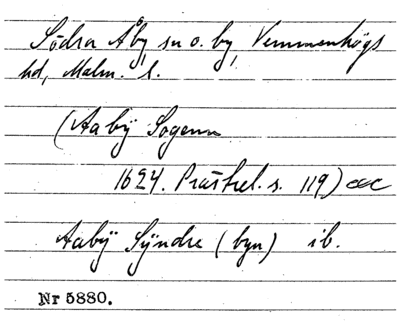 Södra Åby, sn o. by, Vemmenhögs
hd, Malm. l.
(Aabÿ Sogenn
1624. Prästrel. s. 119)
Aabÿ Sÿndre (byn) ib.
Nr 5880.